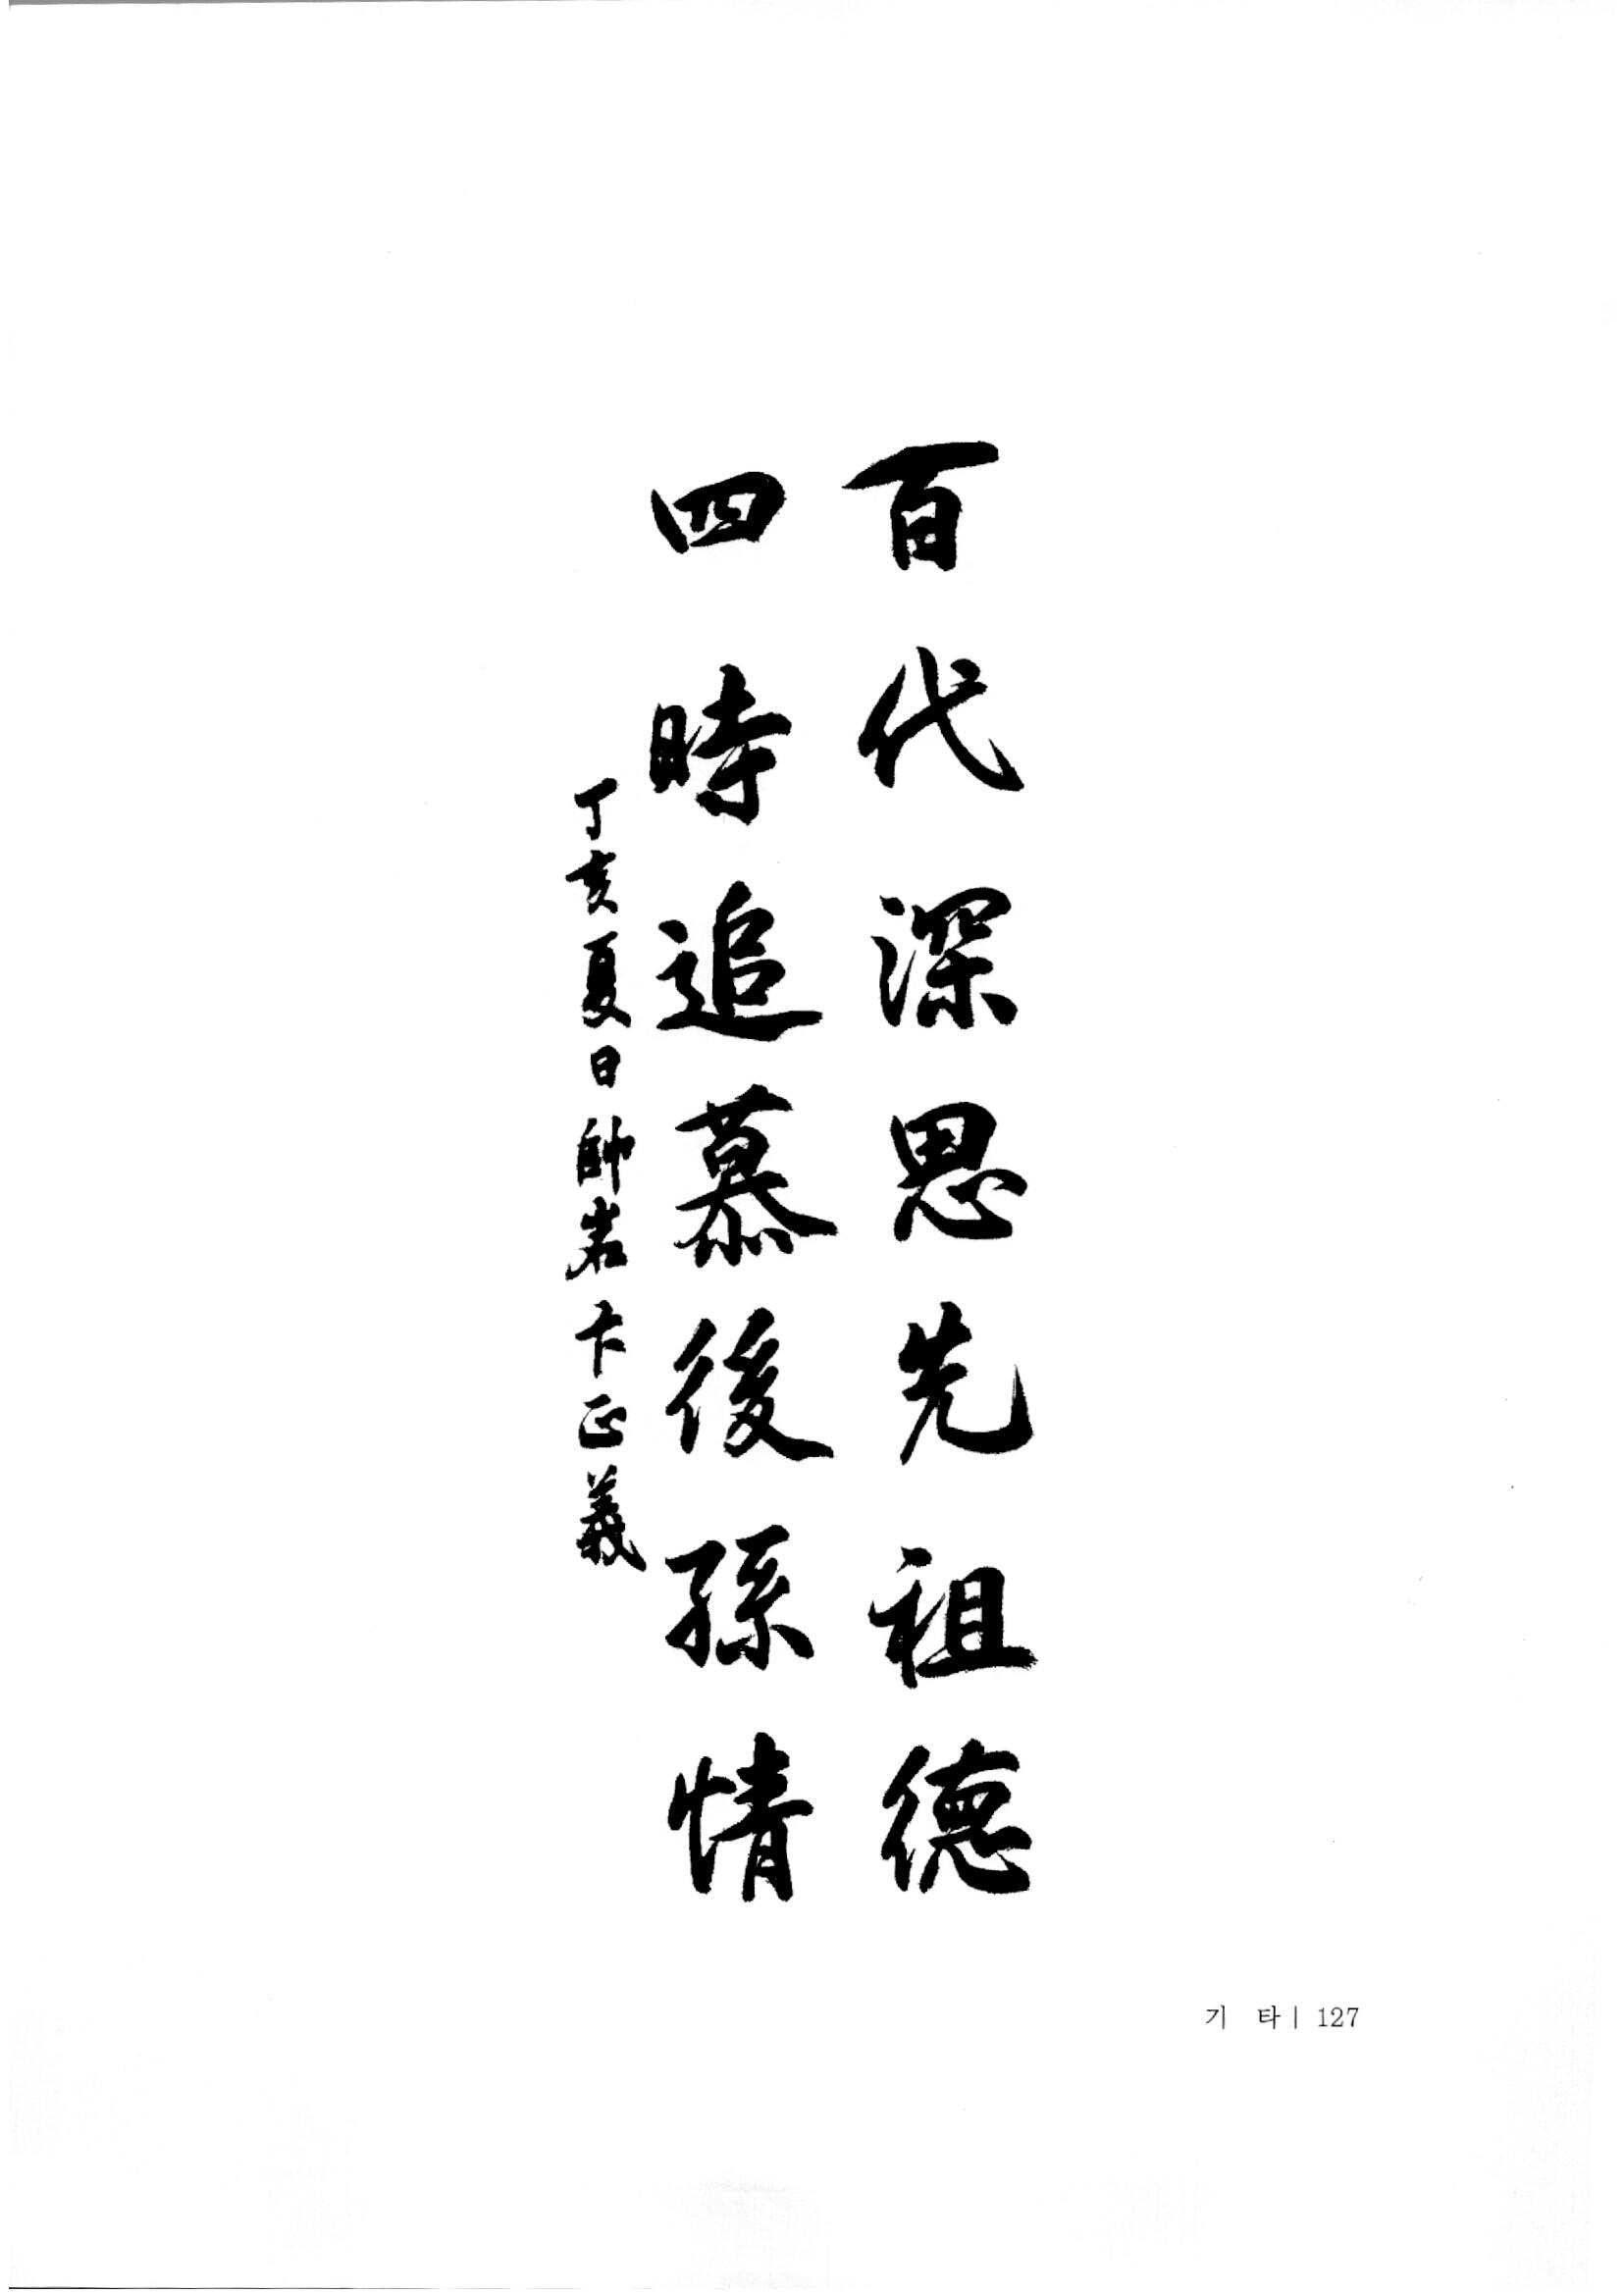 百代深思先祖德
四時追慕後孫情
丁亥夏日帥岩卞正義
기 타 | 127